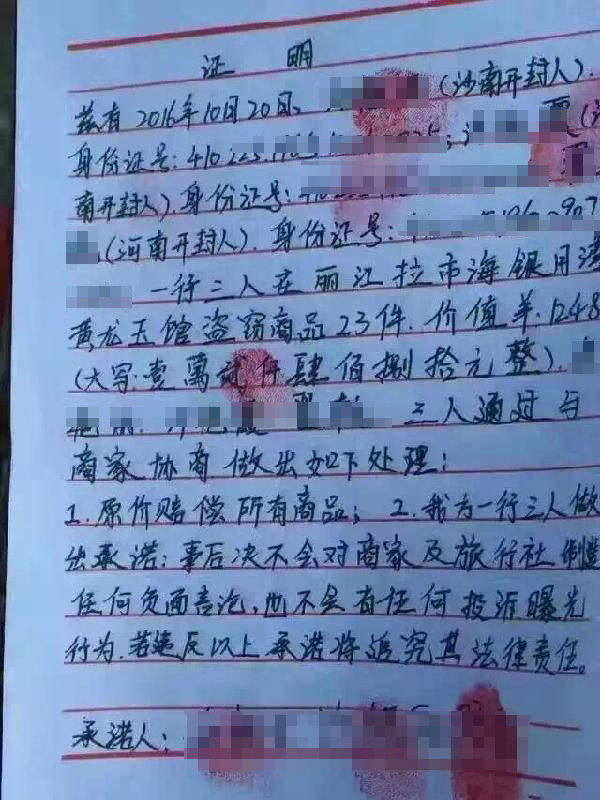 证 明
兹有2016年10月20日, (沙南开封人).
身份证号: 410
南开封人), 身份证号:
(河南开封人). 身份证号:
一行三人在丽江拉市海银月湾
黄龙玉馆盗窃商品23件. 价值羊:1248
(大写:壹萬贰仟肆佰捌拾元整).
三人通过与
商家协商做出如下处理:
1. 原价赔偿所有商品; 2. 我方一行三人做
出承诺: 事后决不会对商家及旅行社制造
任何负面言论, 也不会有任何投诉曝光
行为. 若违反以上承诺将追究其法律责任。
承诺人: